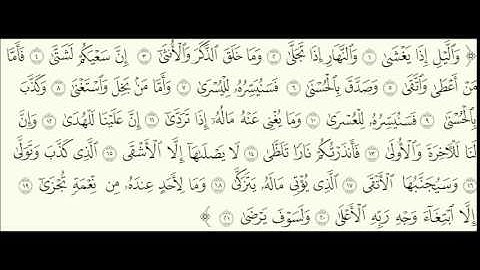 ﴿ وَٱلَّيۡلِ إِذَا يَغۡشَىٰ ١ وَٱلنَّهَارِ إِذَا تَجَلَّىٰ ٢ وَمَا خَلَقَ ٱلذَّكَرَ وَٱلۡأُنثَىٰٓ ٣ إِنَّ سَعۡيَكُمۡ لَشَتَّىٰ ٤ فَأَمَّا
مَنۡ أَعۡطَىٰ وَٱتَّقَىٰ ٥ وَصَدَّقَ بِٱلۡحُسۡنَىٰ ٦ فَسَنُيَسِّرُهُۥ لِلۡيُسۡرَىٰ ٧ وَأَمَّا مَنۢ بَخِلَ وَٱسۡتَغۡنَىٰ ٨ وَكَذَّبَ
بِٱلۡحُسۡنَىٰ ٩ فَسَنُيَسِّرُهُۥ لِلۡعُسۡرَىٰ ١٠ وَمَا يُغۡنِي عَنۡهُ مَالُهُۥٓ إِذَا تَرَدَّىٰٓ ١١ إِنَّ عَلَيۡنَا لَلۡهُدَىٰ ١٢ وَإِنَّ
لَنَا لَلۡأٓخِرَةَ وَٱلۡأُولَىٰ ١٣ فَأَنذَرۡتُكُمۡ نَارٗا تَلَظَّىٰ ١٤ لَا يَصۡلَىٰهَآ إِلَّا ٱلۡأَشۡقَى ١٥ ٱلَّذِي كَذَّبَ وَتَوَلَّىٰ
١٦ وَسَيُجَنَّبُهَا ٱلۡأَتۡقَى ١٧ ٱلَّذِي يُؤۡتِي مَالَهُۥ يَتَزَكَّىٰ ١٨ وَمَا لِأَحَدٍ عِندَهُۥ مِن نِّعۡمَةٖ تُجۡزَىٰٓ ١٩
إِلَّا ٱبۡتِغَآءَ وَجۡهِ رَبِّهِ ٱلۡأَعۡلَىٰ ٢٠ وَلَسَوۡفَ يَرۡضَىٰ ٢١ ﴾